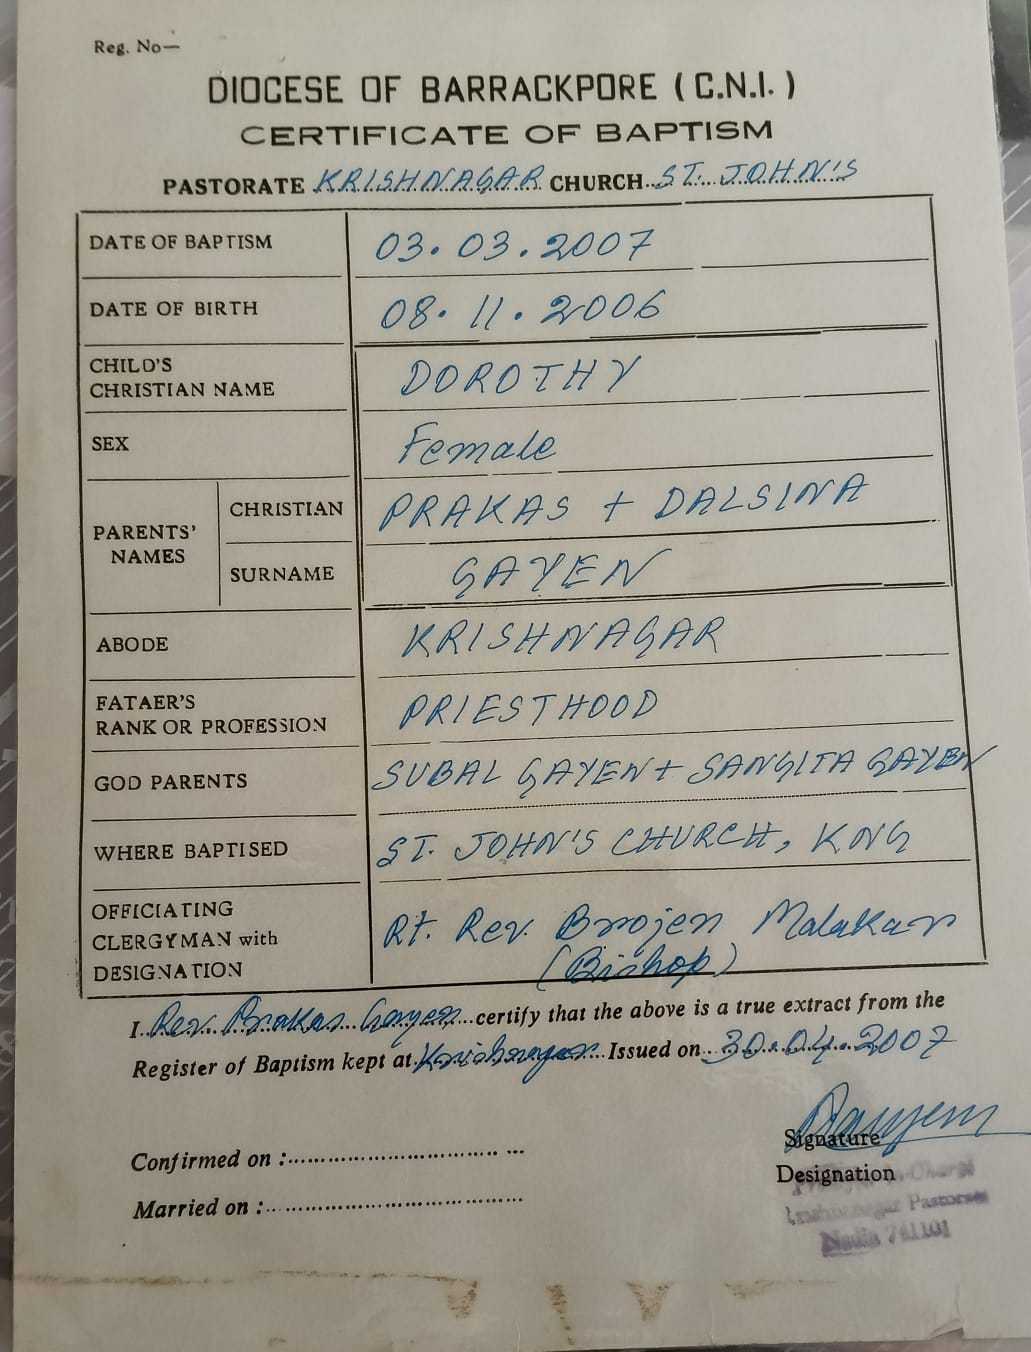 Reg. No—
DIOCESE OF BARRACKPORE (C.N.I.)
CERTIFICATE OF BAPTISM
PASTORATE KRISHNAGAR CHURCH ST. JOHN'S
DATE OF BAPTISM 03.03.2007
DATE OF BIRTH 08.11.2006
CHILD'S
CHRISTIAN NAME DOROTHY
SEX Female
PARENTS' NAMES CHRISTIAN PRAKAS + DALSINA
SURNAME GAYEN
ABODE KRISHNAGAR
FATAER'S
RANK OR PROFESSION PRIESTHOOD
GOD PARENTS SUBAL GAYEN + SANGITA GAYEN
WHERE BAPTISED ST. JOHN'S CHURCH, KNG
OFFICIATING
CLERGYMAN with Rt. Rev. Brojen Malakar
DESIGNATION (Bishop)
I Rev. Prakas Gayen certify that the above is a true extract from the
Register of Baptism kept at Krishnagar Issued on 30.04.2007
Gayen
Signature
Confirmed on :
Designation
Married on :
In-Charge
Krishnagar Pastorate
Nadia 741101